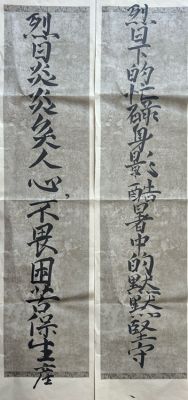 烈日下的忙碌身影酷暑中的默默坚守
烈日炎炎灸人心,不畏困苦保生产